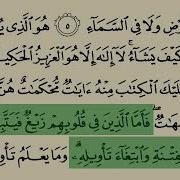 رْضِ وَلَا فِي السَّمَآءِ ٥ هُوَ الَّذِي يُ
كَيْفَ يَشَآءُ لَآ إِلَٰهَ إِلَّا هُوَ الْعَزِيزُ الْحَكِي
لَيْكَ الْكِتَٰبَ مِنْهُ ءَايَٰتٌ مُّحْكَمَٰتٌ هُنَّ
بِهَٰتٌ فَأَمَّا الَّذِينَ فِي قُلُوبِهِمْ زَيْغٌ فَيَتَّبِ
لْفِتْنَةِ وَابْتِغَآءَ تَأْوِيلِهِ وَمَا يَعْلَمُ تَأْوِ